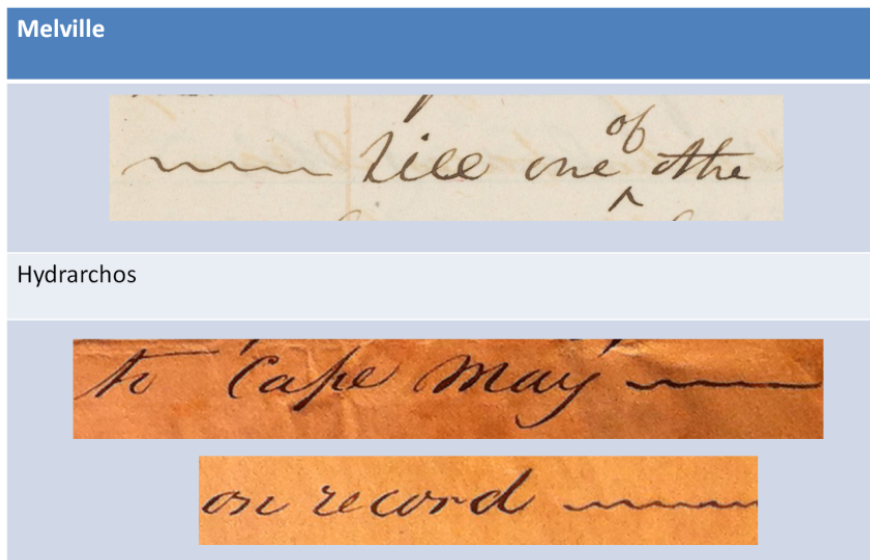 Melville
~~~ till one of othe
Hydrarchos
to Cape May ~~~
on record ~~~